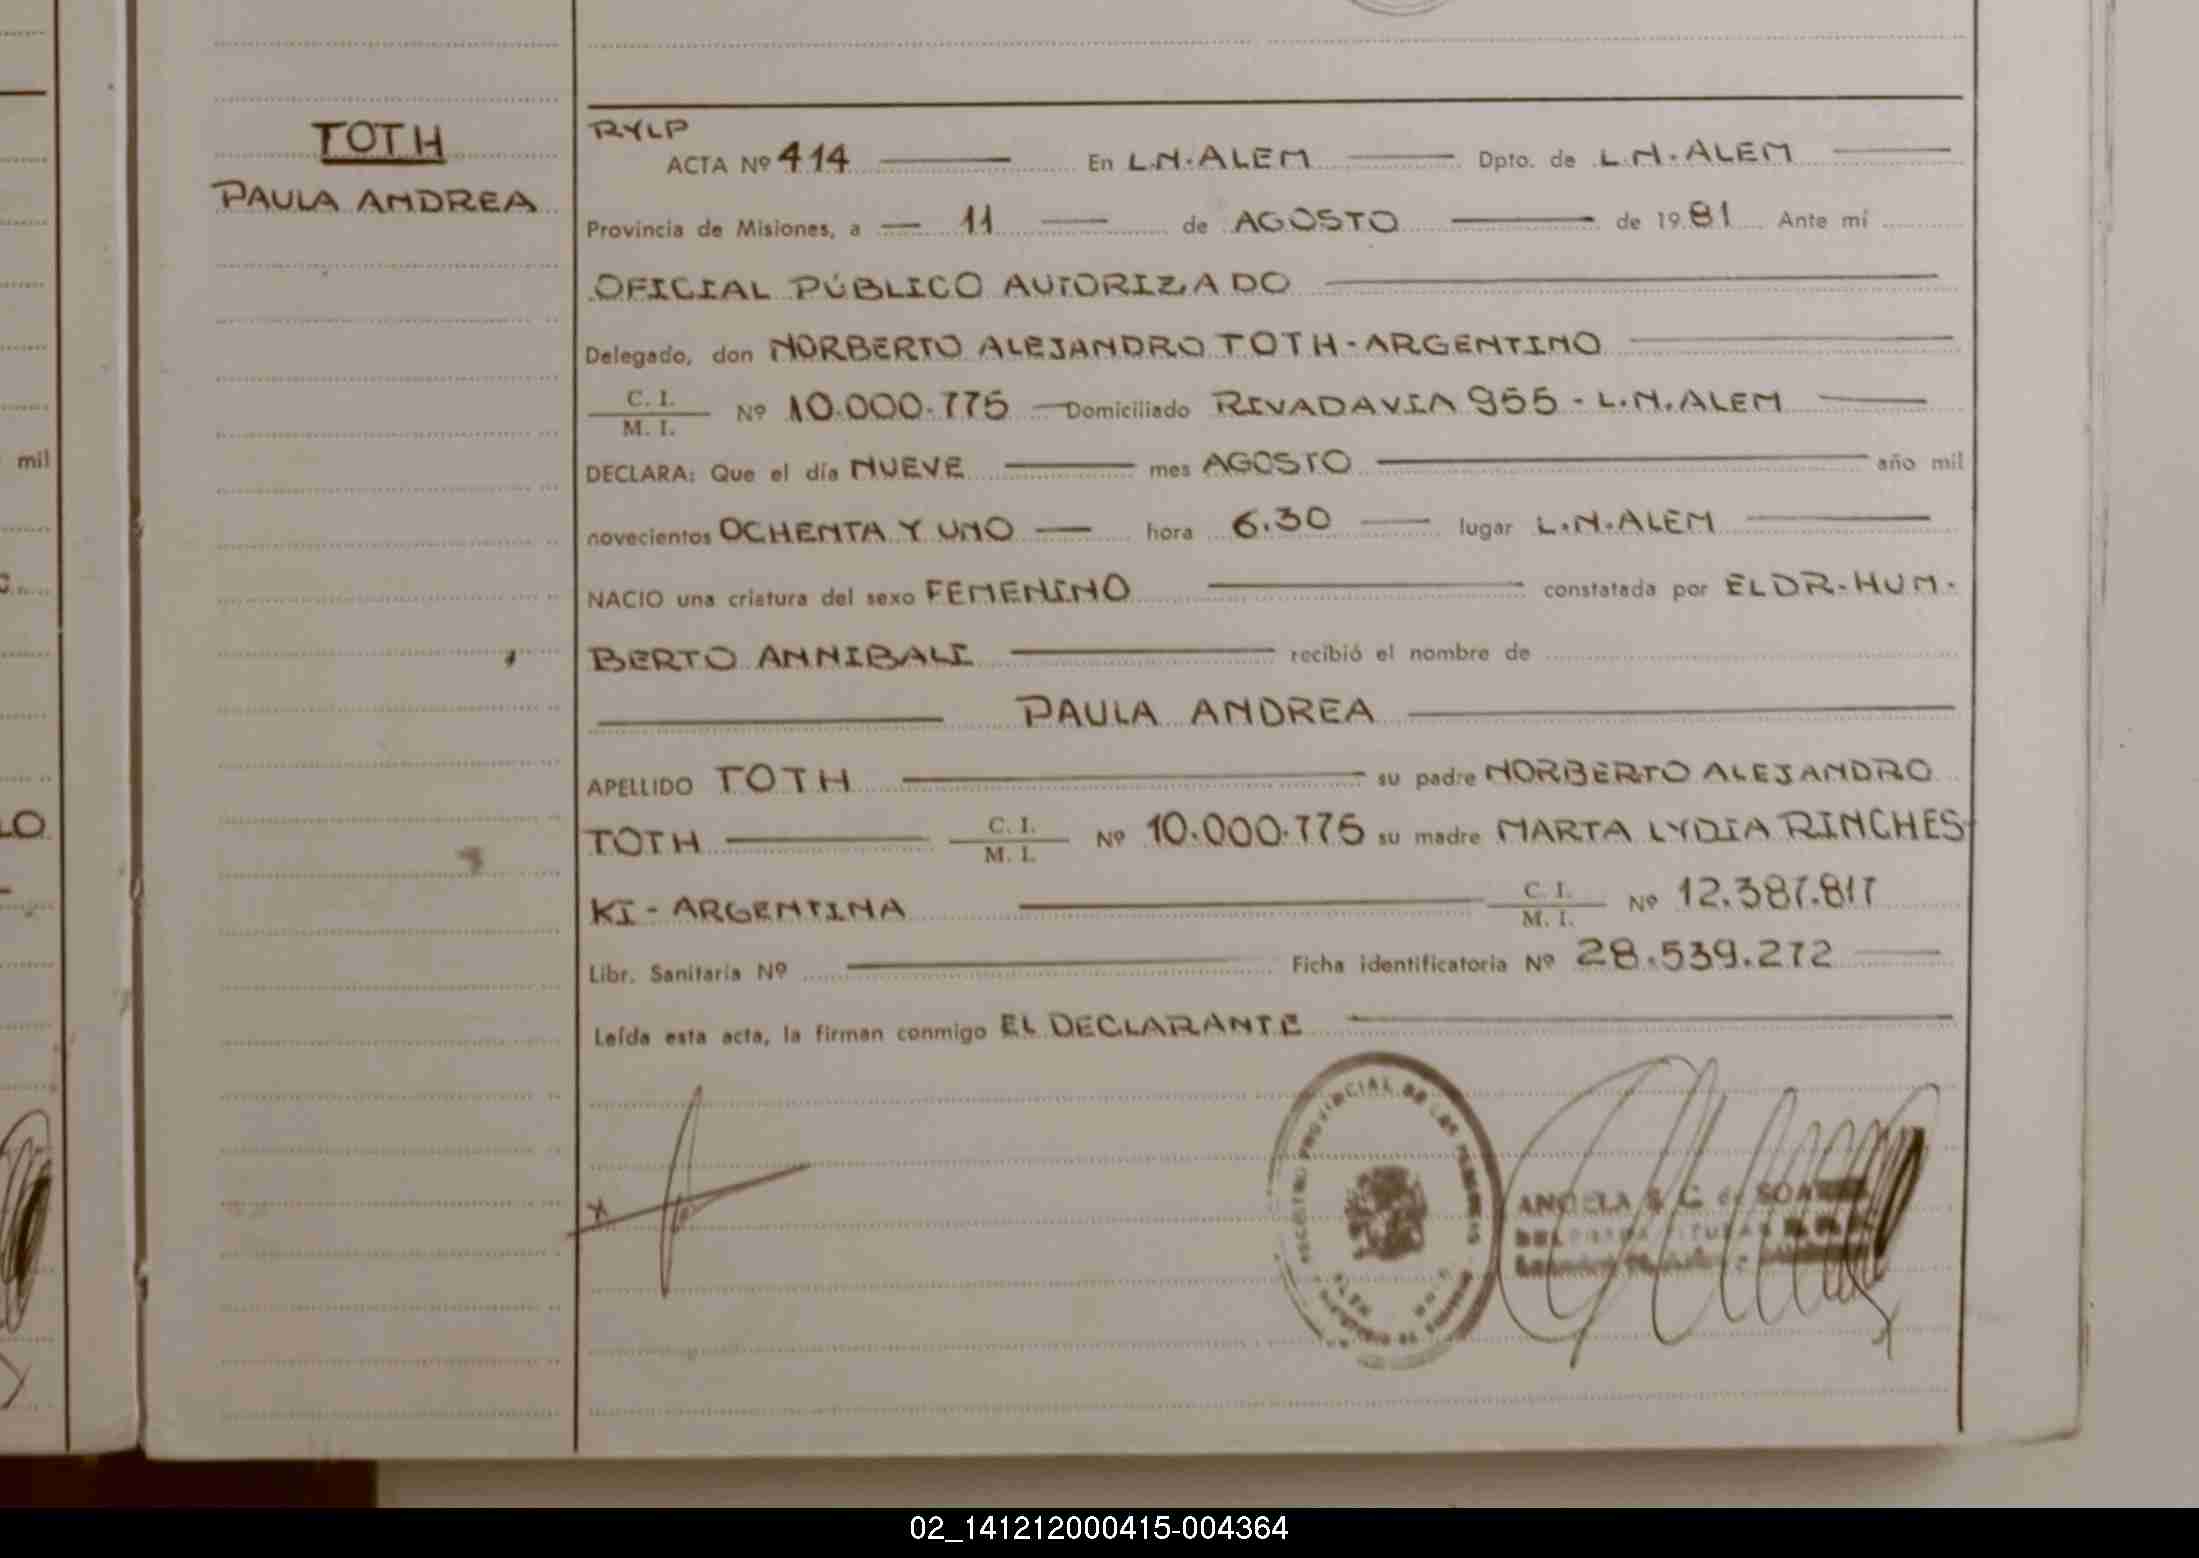 TOTH
PAULA ANDREA
RYLP
ACTA Nº 414 En L.N.ALEM Dpto. de L.N.ALEM
Provincia de Misiones, a 11 de AGOSTO de 1981 Ante mí
OFICIAL PÚBLICO AUTORIZADO
Delegado, don NORBERTO ALEJANDRO TOTH-ARGENTINO
C. I.
M. I. Nº 10.000.775 Domiciliado RIVADAVIA 955 - L.N.ALEM
DECLARA: Que el día NUEVE mes AGOSTO año mil
novecientos OCHENTA Y UNO hora 6.30 lugar L.N.ALEM
NACIO una criatura del sexo FEMENINO constatada por EL DR-HUM-
BERTO ANNIBALI recibió el nombre de
PAULA ANDREA
APELLIDO TOTH su padre NORBERTO ALEJANDRO
TOTH C. I. M. I. Nº 10.000.775 su madre MARTA LYDIA RINCHES-
KI - ARGENTINA C. I. M. I. Nº 12.387.817
Libr. Sanitaria Nº Ficha identificatoria Nº 28.539.272
Leída esta acta, la firman conmigo EL DECLARANTE
PROVINCIAL DE LAS PERSONAS
ANGELA
mil
LO
02_141212000415-004364